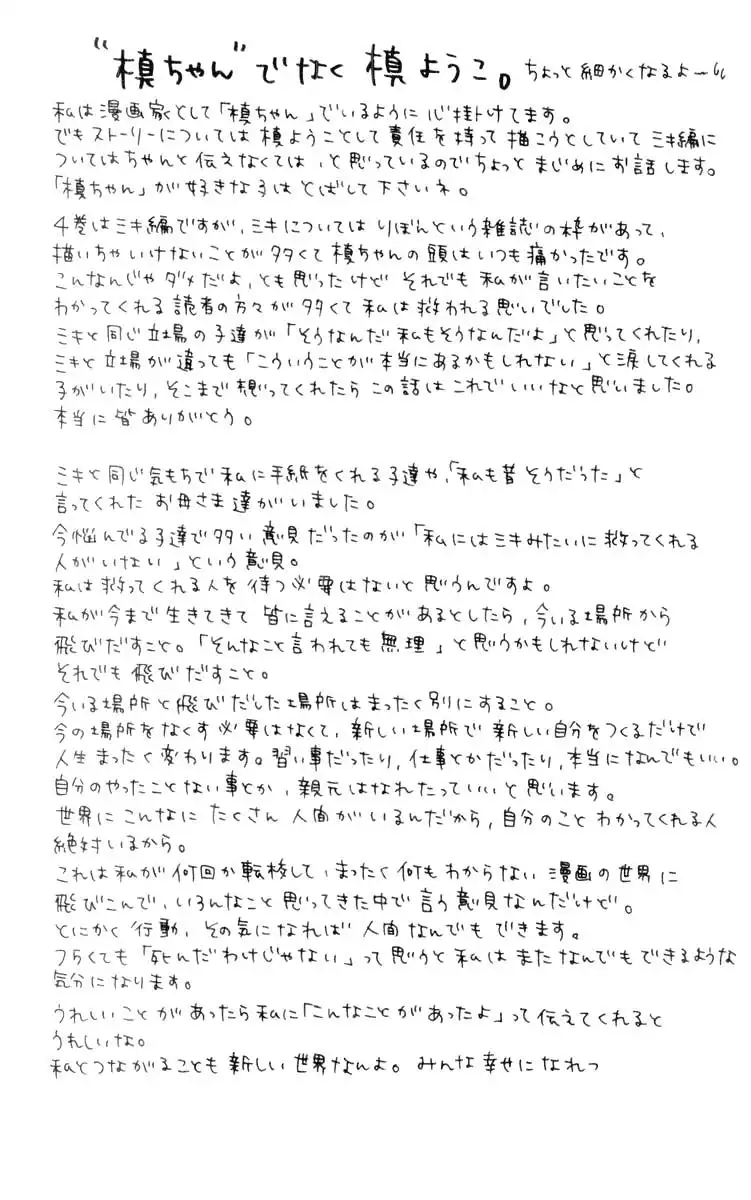 “槙ちゃん”でなく 槙ようこ。ちょっと細かくなるよー
私は漫画家として「槙ちゃん」でいるように心掛けてます。
でもストーリーについては槙ようことして責任を持って描こうとしていてミキ編に
ついてはちゃんと伝えなくては、と思っているのでちょっとまじめにお話します。
「槙ちゃん」が好きな子はとばして下さいネ。
4巻はミキ編ですが、ミキについてはりぼんという雑誌の枠があって、
描いちゃいけないことが多くて槙ちゃんの頭はいつも痛かったです。
こんなんじゃダメだよ、とも思ったけどそれでも私が言いたいことを
わかってくれる読者の方々が多くて私は救われる思いでした。
ミキと同じ立場の子達が「そうなんだ私もそうなんだよ」と思ってくれたり、
ミキと立場が違っても「こういうことが本当にあるかもしれない」と涙してくれる
子がいたり、そこまで想ってくれたらこの話はこれでいいなと思いました。
本当に皆ありがとう。
ミキと同じ気もちで私に手紙をくれる子達や、「私も昔そうだった」と
言ってくれたお母さま達がいました。
今悩んでる子達で多い意見だったのが「私にはミキみたいに救ってくれる
人がいない」という意見。
私は救ってくれる人を待つ必要はないと思うんですよ。
私が今まで生きてきて皆に言えることがあるとしたら、今いる場所から
飛びだすこと。「そんなこと言われても無理」と思うかもしれないけど
それでも飛びだすこと。
今いる場所と飛びだした場所はまったく別にすること。
今の場所をなくす必要はなくて、新しい場所で新しい自分をつくるだけで
人生まったく変わります。習い事だったり、仕事とかだったり、本当になんでもいい。
自分のやったことない事とか、親元はなれたっていいと思います。
世界にこんなにたくさん人間がいるんだから、自分のことわかってくれる人
絶対いるから。
これは私が何回か転校して、まったく何もわからない漫画の世界に
飛びこんで、いろんなこと思ってきた中で言う意見なんだけど。
とにかく行動、その気になれば人間なんでもできます。
つらくても「死んだわけじゃない」って思うと私はまたなんでもできるような
気分になります。
うれしいことがあったら私に「こんなことがあったよ」って伝えてくれると
うれしいな。
私とつながることも新しい世界なんよ。みんな幸せになれっ